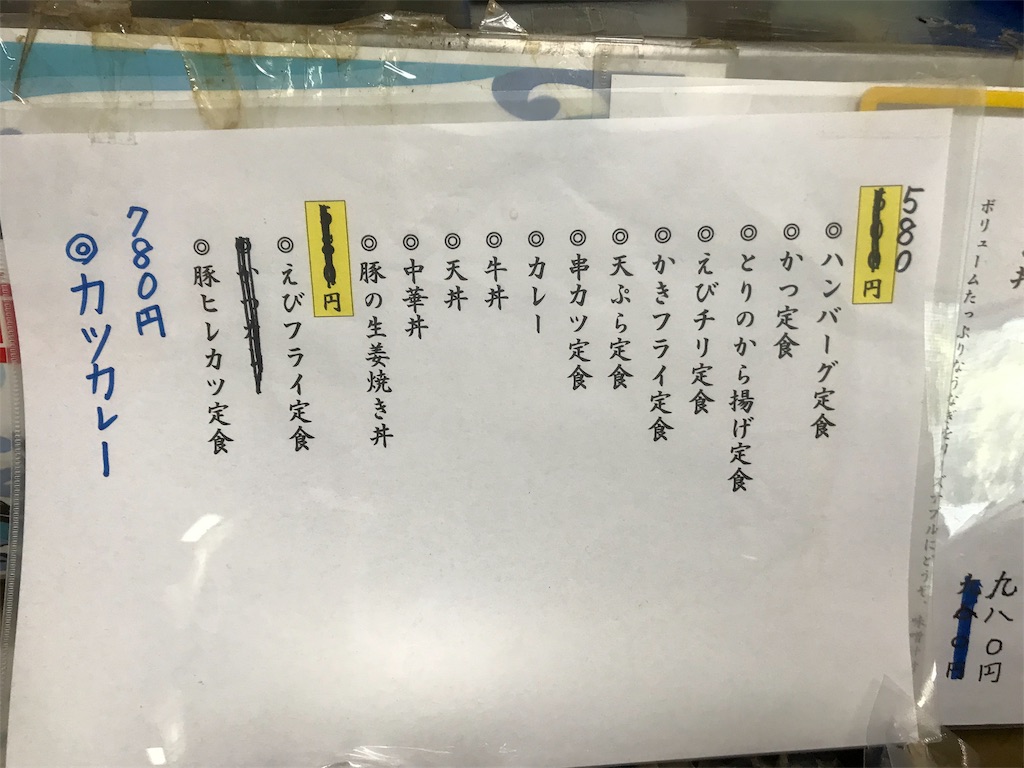 ボリュームたっぷりなうなぎと
九八〇円
580
円
◎ハンバーグ定食
◎かつ定食
◎とりのから揚げ定食
◎えびチリ定食
◎かきフライ定食
◎天ぷら定食
◎串カツ定食
◎カレー
◎牛丼
◎天丼
◎中華丼
◎豚の生姜焼き丼
円
◎えびフライ定食
◎豚ヒレカツ定食
780円
◎カツカレー